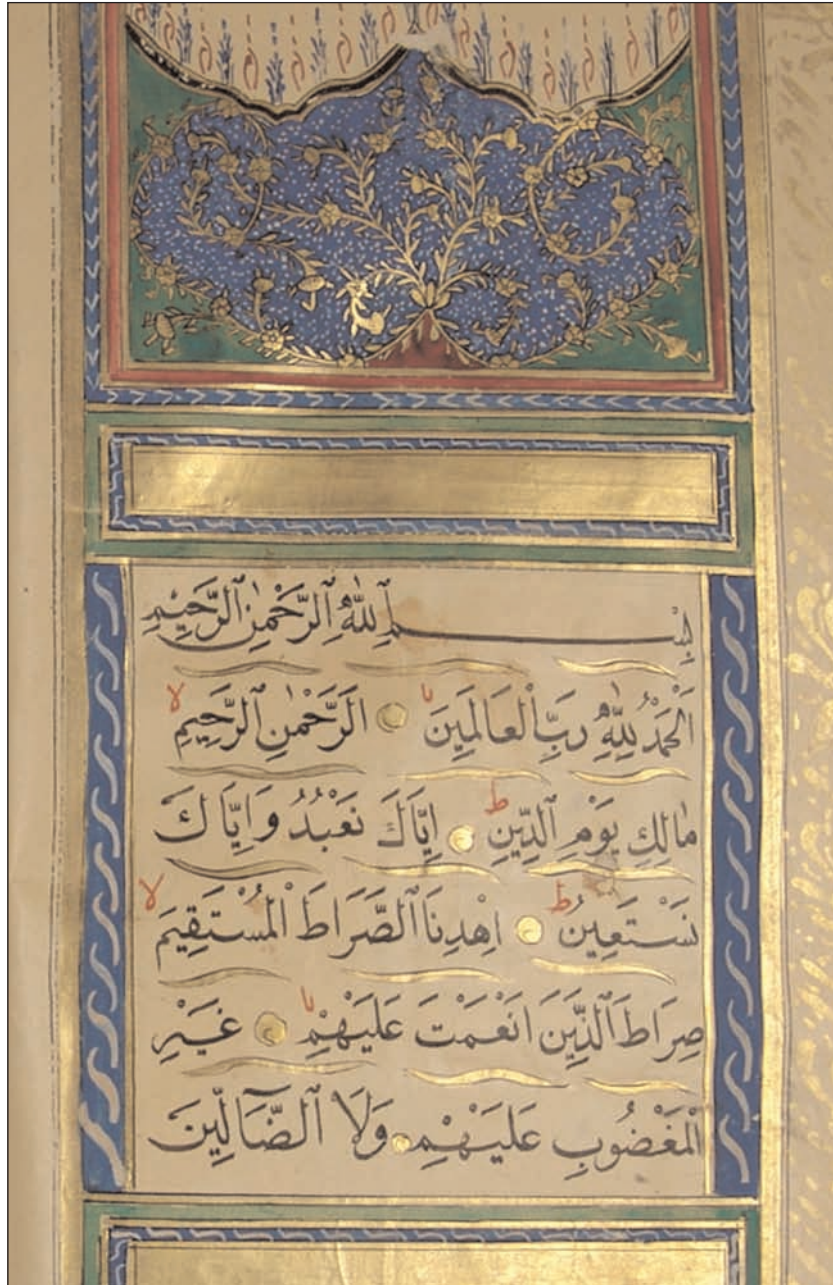 بِسْمِ ٱللّٰهِ ٱلرَّحْمٰنِ ٱلرَّحِيمِ
اَلْحَمْدُ لِلّٰهِ رَبِّ ٱلْعَالَمِينَ لا ۝ اَلرَّحْمٰنِ ٱلرَّحِيمِ لا
مَالِكِ يَوْمِ ٱلدِّينِ ط ۝ اِيَّاكَ نَعْبُدُ وَاِيَّاكَ
نَسْتَعِينُ ط ۝ اِهْدِنَا ٱلصِّرَاطَ ٱلْمُسْتَقِيمَ لا
صِرَاطَ ٱلَّذِينَ اَنْعَمْتَ عَلَيْهِمْ لا ۝ غَيْرِ
ٱلْمَغْضُوبِ عَلَيْهِمْ ۝ وَلَا ٱلضَّآلِّينَ